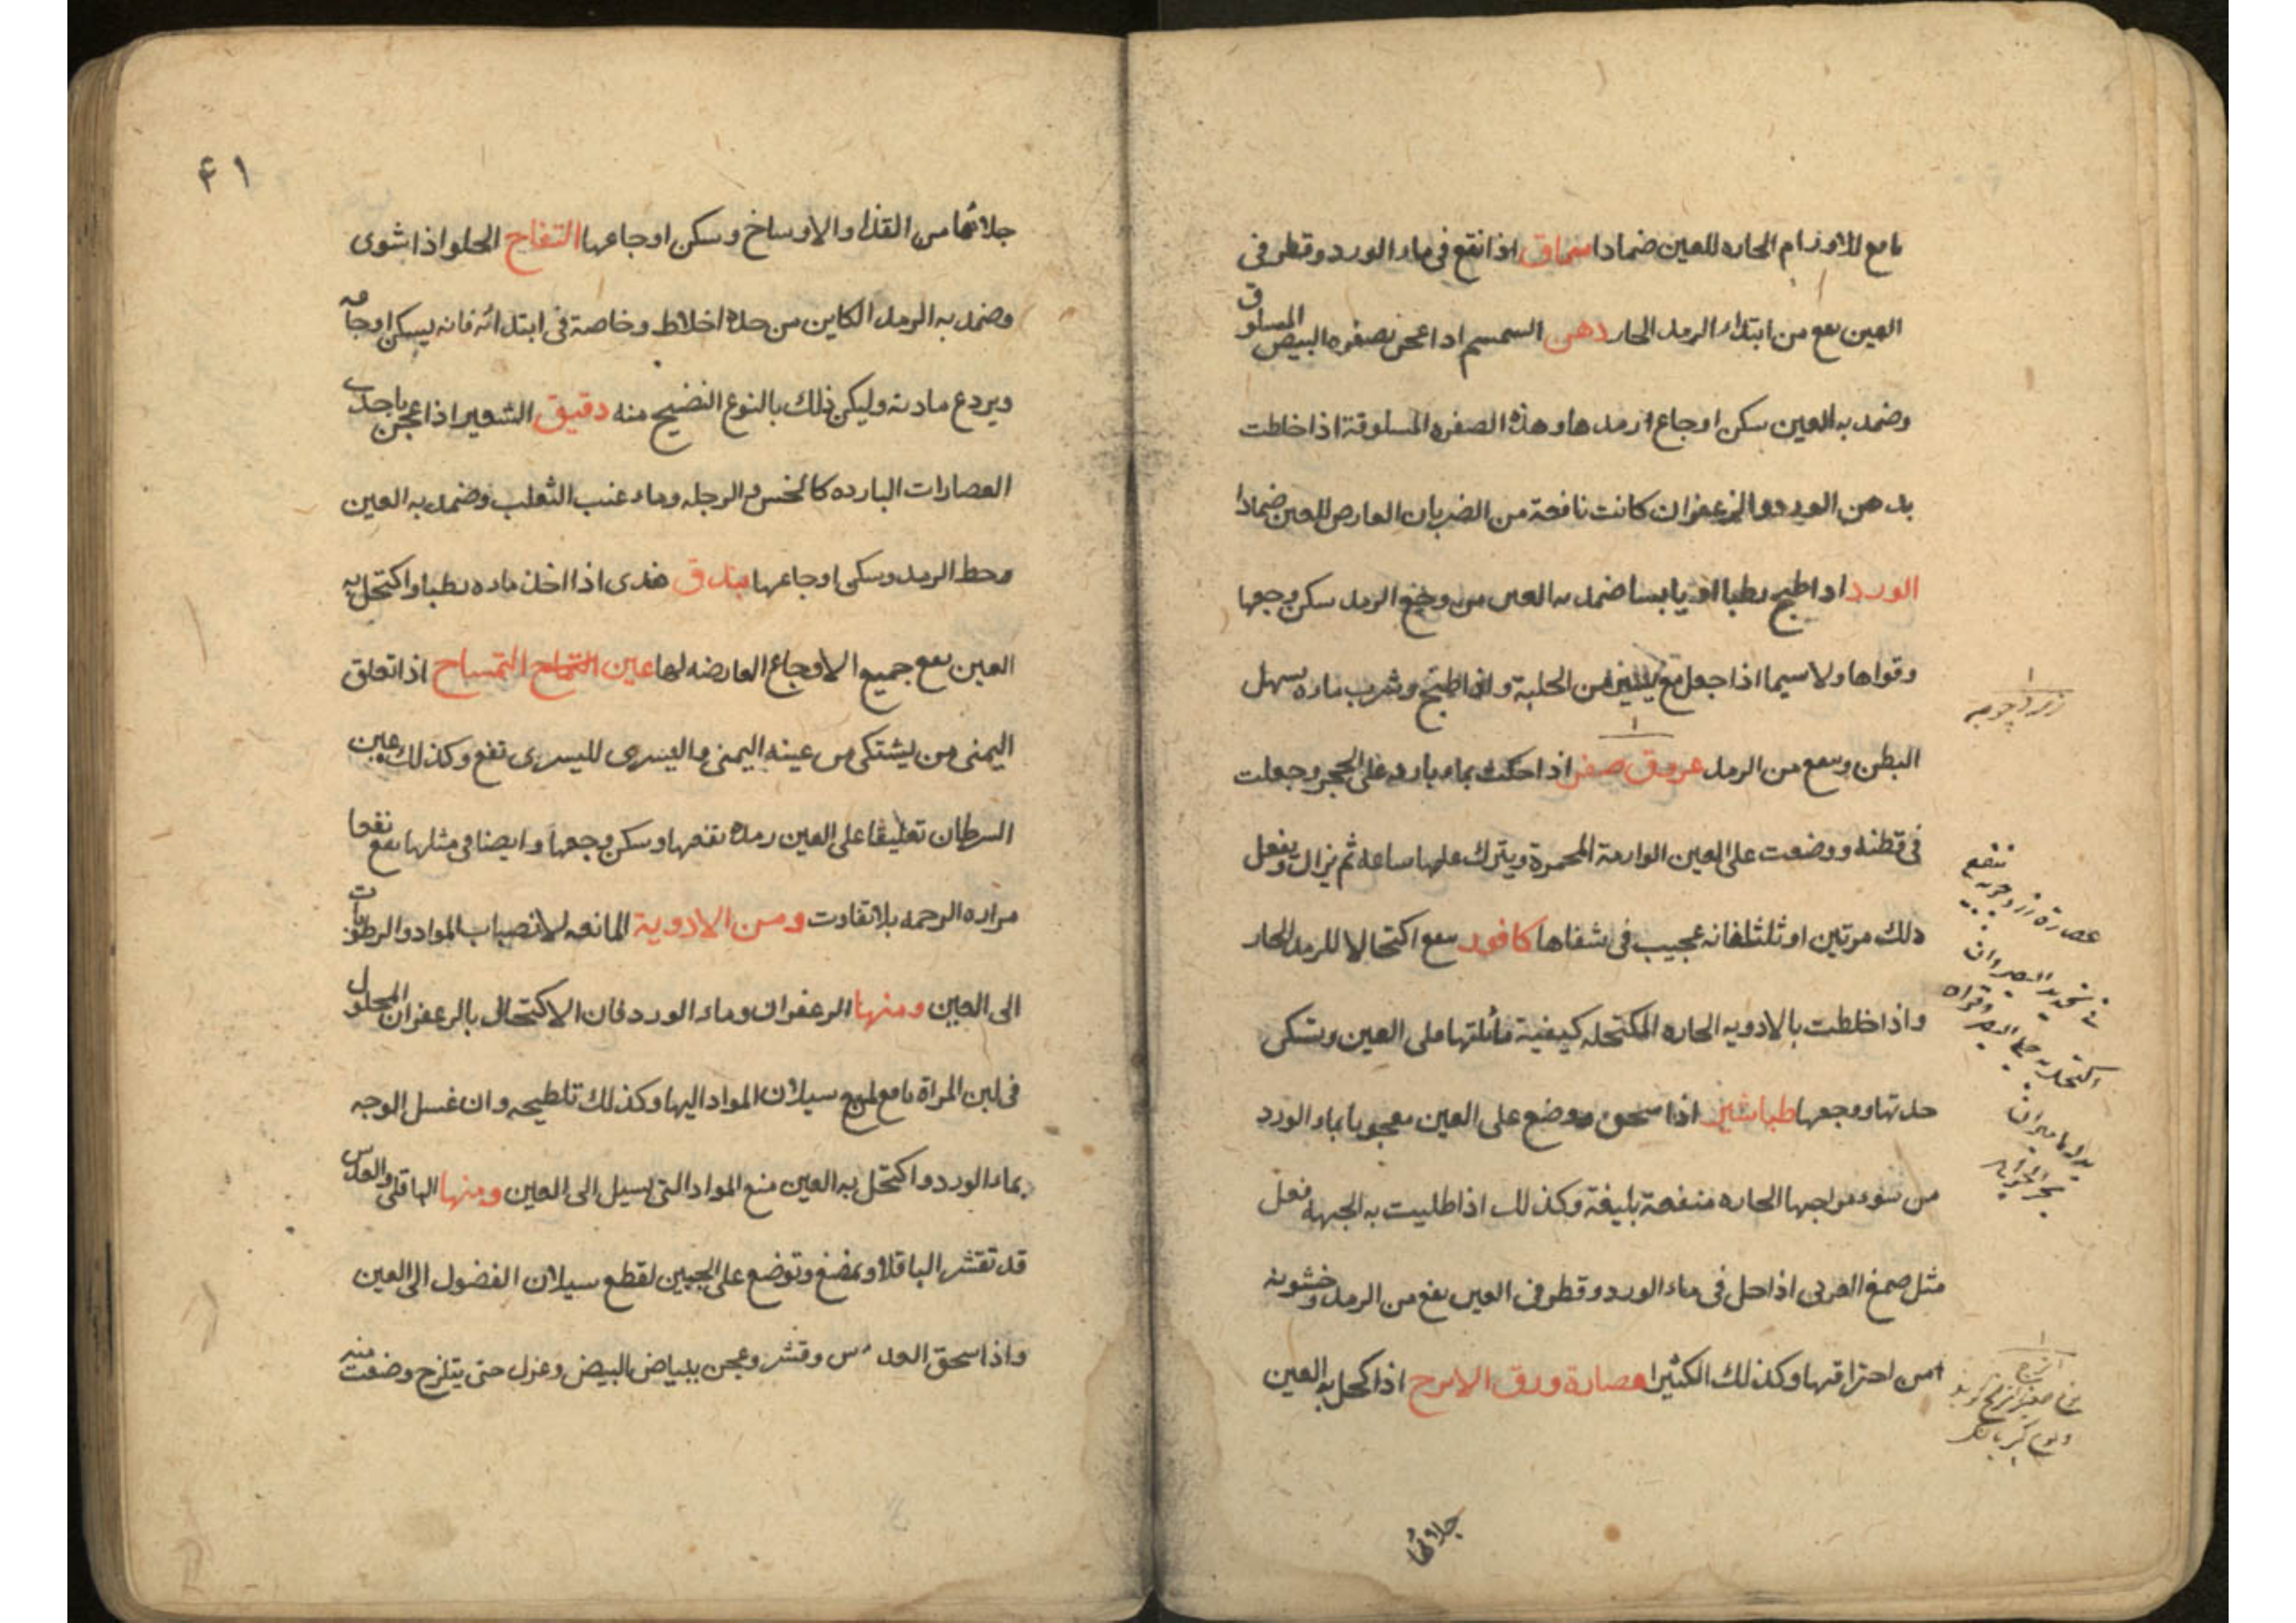 نافع للاورام الحاره للعين ضمادا سماق اذا نقع فى ماء الورد وقطر فى
العين نفع من ابتداء الرمد الحار دهن السمسم اذا عجن بصفره البيض المسلوق
وضمد به العين سكن اوجاع ارمدها وهذه الصفره المسلوقة اذا خلطت
بدهن الورد والزعفران كانت نافعة من الضربان العارض للعين ضمادا
الورد اذا طبخ رطبا او يابسا ضمد به العين من وجع الرمد سكن وجعها
وقواها ولا سيما اذا جعل مع من الحلبة وان طبخ وشرب ماءه يسهل
البطن ونفع من الرمد عروق صفر اذا حكت بماء بارد على الحجر وجعلت
فى قطنه ووضعت على العين الوارمة المحمرة ويترك عليها ساعه ثم يزال ويفعل
ذلك مرتين او ثلثا فانه عجيب فى شفاها كافور نفع اكتحالا للرمد الحار
واذا خلطت بالادويه الحاره المكتحله كيفية على العين وتسكن
حدتها ووجعها طباشير اذا سحق ووضع على العين معجونا بماء الورد
من سوء مزاجها الحاره منفعة بليغة وكذلك اذا طليت به الجبهة فعل
مثل صمغ العربى اذا حل فى ماء الورد وقطر فى العين نفع من الرمد وخشونه
من احتراقها وكذلك الكثيرا عصارة ورق الاترج اذا كحل به العين
زرد چوبه
عصارة تنفع
جلائها
۴۱
جلائها من القذا والاوساخ وسكن اوجاعها التفاح الحلو اذا شوى
وضمد به الرمد الكاين من حدة اخلاط وخاصة فى ابتدائه فانه يسكن اوجاعه
ويردع مادته وليكن ذلك بالنوع النضيج منه دقيق الشعير اذا عجن باحدى
العصارات البارده كالخس والرجله وماء عنب الثعلب وضمد به العين
وحط الرمد وسكن اوجاعها بندق هندى اذا اخذ ماءه رطبا واكتحل به
العين نفع جميع الاوجاع العارضه لها عين التمساح التمساح اذا تعلق
اليمنى من يشتكى من عينه اليمنى واليسرى لليسرى نفع وكذلك عين
السرطان تعليقا على العين رمدة نفعها وسكن وجعها وايضا فى مثلها نفع نفعا
مراره الرخمه بلا تفاوت ومن الادوية المانعه لانصباب المواد والرطوبات
الى العين ومنها الزعفران وماء الورد فان الاكتحال بالزعفران المحلول
فى لبن المراة نافع لمنع سيلان المواد اليها وكذلك تلطيخه وان غسل الوجه
بماء الورد واكتحل به العين منع المواد التى يسيل الى العين ومنها الباقلى والعدس
قد تقشر الباقلا ويمضغ وتوضع على الجبين لقطع سيلان الفضول الى العين
واذا سحق العدس وقشر وعجن ببياض البيض وعزل حتى يتلزج وضعت منه